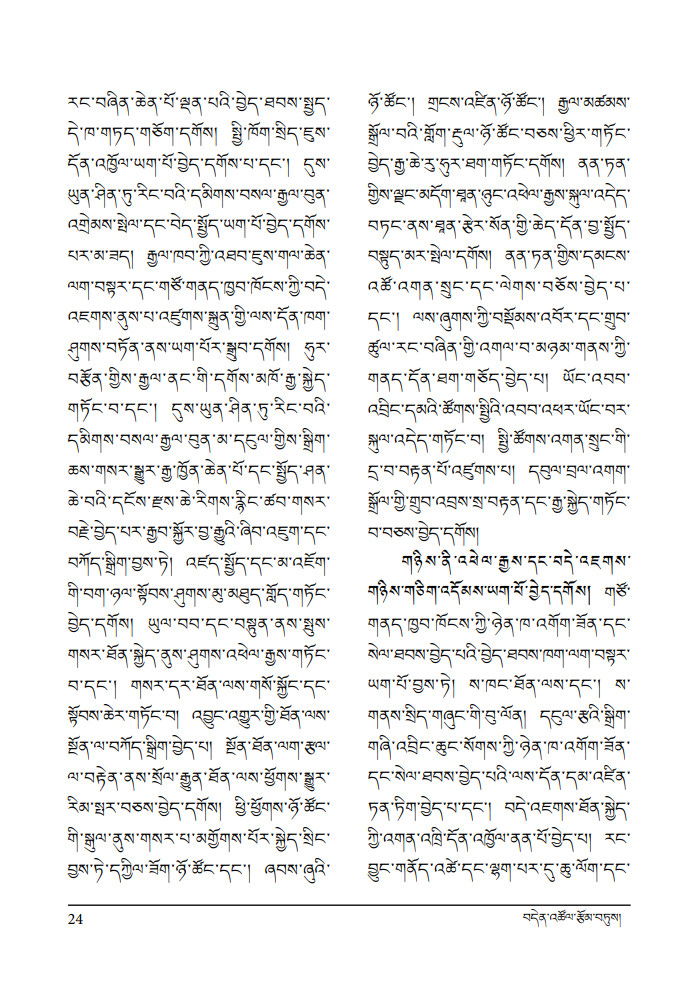 རང་བཞིན་ཆེན་པོ་ལྡན་པའི་བྱེད་ཐབས་སྤྱད་
དེ་ཁ་གཏད་གཅོག་དགོས། སྤྱི་ཁོག་སྲིད་ཇུས་
དོན་འཁྱོལ་ཡག་པོ་བྱེད་དགོས་པ་དང་། དུས་
ཡུན་ཤིན་ཏུ་རིང་བའི་དམིགས་བསལ་རྒྱལ་བུན་
འགྲེམས་སྤེལ་དང་བེད་སྤྱོད་ཡག་པོ་བྱེད་དགོས་
པར་མ་ཟད། རྒྱལ་ཁབ་ཀྱི་འཐབ་ཇུས་གལ་ཆེན་
ལག་བསྟར་དང་གཙོ་གནད་ཁྱབ་ཁོངས་ཀྱི་བདེ་
འཇགས་ནུས་པ་འཛུགས་སྐྲུན་གྱི་ལས་དོན་ཁག་
ཤུགས་བཏོན་ནས་ཡག་པོར་སྒྲུབ་དགོས། ཧུར་
བརྩོན་གྱིས་རྒྱལ་ནང་གི་དགོས་མཁོ་རྒྱ་སྐྱེད་
གཏོང་བ་དང་། དུས་ཡུན་ཤིན་ཏུ་རིང་བའི་
དམིགས་བསལ་རྒྱལ་བུན་མ་དངུལ་གྱིས་སྒྲིག་
ཆས་གསར་སྒྱུར་རྒྱ་ཁྱོན་ཆེན་པོ་དང་སྤྱོད་ཤན་
ཆེ་བའི་དངོས་རྫས་ཆེ་རིགས་རྙིང་ཚབ་གསར་
བརྗེ་བྱེད་པར་རྒྱབ་སྐྱོར་བྱ་རྒྱུའི་ཞིབ་འཇུག་དང་
བཀོད་སྒྲིག་བྱས་ཏེ། འཛད་སྤྱོད་དང་མ་འཇོག་
གི་བག་ཉལ་སྟོབས་ཤུགས་མུ་མཐུད་གློད་གཏོང་
བྱེད་དགོས། ཡུལ་བབ་དང་བསྟུན་ནས་སྤུས་
གསར་ཐོན་སྐྱེད་ནུས་ཤུགས་འཕེལ་རྒྱས་གཏོང་
བ་དང་། གསར་དར་ཐོན་ལས་གསོ་སྐྱོང་དང་
སྟོབས་ཆེར་གཏོང་བ། འབྱུང་འགྱུར་གྱི་ཐོན་ལས་
སྔོན་ལ་བཀོད་སྒྲིག་བྱེད་པ། སྔོན་ཐོན་ལག་རྩལ་
ལ་བརྟེན་ནས་སྲོལ་རྒྱུན་ཐོན་ལས་ཕྱོགས་སྒྱུར་
རིམ་སྤར་བཅས་བྱེད་དགོས། ཕྱི་ཕྱོགས་ཉོ་ཚོང་
གི་སྒུལ་ནུས་གསར་པ་མགྱོགས་པོར་སྐྱེད་སྲིང་
བྱས་ཏེ་དཀྱིལ་ཟོག་ཉོ་ཚོང་དང་། ཞབས་ཞུའི་
ཉོ་ཚོང་། གྲངས་འཛིན་ཉོ་ཚོང་། རྒྱལ་མཚམས་
སྒྲོལ་བའི་གློག་རྡུལ་ཉོ་ཚོང་བཅས་ཕྱིར་གཏོང་
བྱེད་རྒྱ་ཆེ་རུ་ཧུར་ཐག་གཏོང་དགོས། ནན་ཏན་
གྱིས་ལྗང་མདོག་ཐྲན་ཉུང་འཕེལ་རྒྱས་སྐུལ་འདེད་
བཏང་ནས་ཐྲན་རྩེར་སོན་གྱི་ཆེད་དོན་བྱ་སྤྱོད་
བསྟུད་མར་སྤེལ་དགོས། ནན་ཏན་གྱིས་དམངས་
འཚོ་འགན་སྲུང་དང་ལེགས་བཅོས་བྱེད་པ་
དང་། ལས་ཞུགས་ཀྱི་བསྡོམས་འབོར་དང་གྲུབ་
ཚུལ་རང་བཞིན་གྱི་འགལ་བ་མཉམ་གནས་ཀྱི་
གནད་དོན་ཐག་གཅོད་བྱེད་པ། ཡོང་འབབ་
འབྲིང་དམའི་ཚོགས་སྤྱིའི་འབབ་འཕར་ཡོང་བར་
སྐུལ་འདེད་གཏོང་བ། སྤྱི་ཚོགས་འགན་སྲུང་གི་
དྲ་བ་བརྟན་པོ་འཛུགས་པ། དབུལ་བྲལ་འགག་
སྒྲོལ་གྱི་གྲུབ་འབྲས་སྲ་བརྟན་དང་རྒྱ་སྐྱེད་གཏོང་
བ་བཅས་བྱེད་དགོས།
གཉིས་ནི་འཕེལ་རྒྱས་དང་བདེ་འཇགས་
གཉིས་གཅིག་འདོམས་ཡག་པོ་བྱེད་དགོས། གཙོ་
གནད་ཁྱབ་ཁོངས་ཀྱི་ཉེན་ཁ་འགོག་ཟོན་དང་
སེལ་ཐབས་བྱེད་པའི་བྱེད་ཐབས་ཁག་ལག་བསྟར་
ཡག་པོ་བྱས་ཏེ། ས་ཁང་ཐོན་ལས་དང་། ས་
གནས་སྲིད་གཞུང་གི་བུ་ལོན། དངུལ་རྩའི་སྒྲིག་
གཞི་འབྲིང་ཆུང་སོགས་ཀྱི་ཉེན་ཁ་འགོག་ཟོན་
དང་སེལ་ཐབས་བྱེད་པའི་ལས་དོན་དམ་འཛིན་
ཏན་ཏིག་བྱེད་པ་དང་། བདེ་འཇགས་ཐོན་སྐྱེད་
ཀྱི་འགན་འཁྲི་དོན་འཁྱོལ་ནན་པོ་བྱེད་པ། རང་
བྱུང་གནོད་འཚེ་དང་ལྷག་པར་དུ་ཆུ་ལོག་དང་
24
བདེན་འཚོལ་རྩོམ་བཏུས།